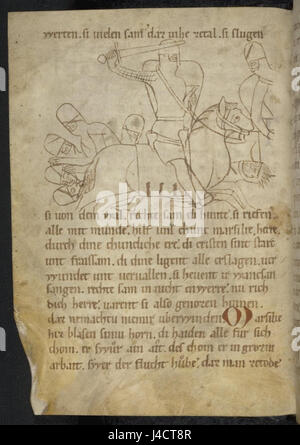 werten. si vielen sam dar vihe zetal. si slugen
si von dem wal. rechte sam di hunte. si riefen
alle mit munde. hilf uns chunc marsilie, herre,
durch dine chunicliche ere. di cristen sint starc
unt fraissam. di dine ligent alle erslagen. vir
wundet unt vervallen. si heuent ir wancsan
sangen. recht sam in nicht enwerre. nu rich
dich herre. varent si also genozen hinnen.
dar nemachtu niemir uberwinden. Marsilie
hiez blasen sinu horn. di haiden alle fur sich
chom. er in grozin
arbait. swer der flucht hube. dar man
a alamy stock photo
J4CT8R